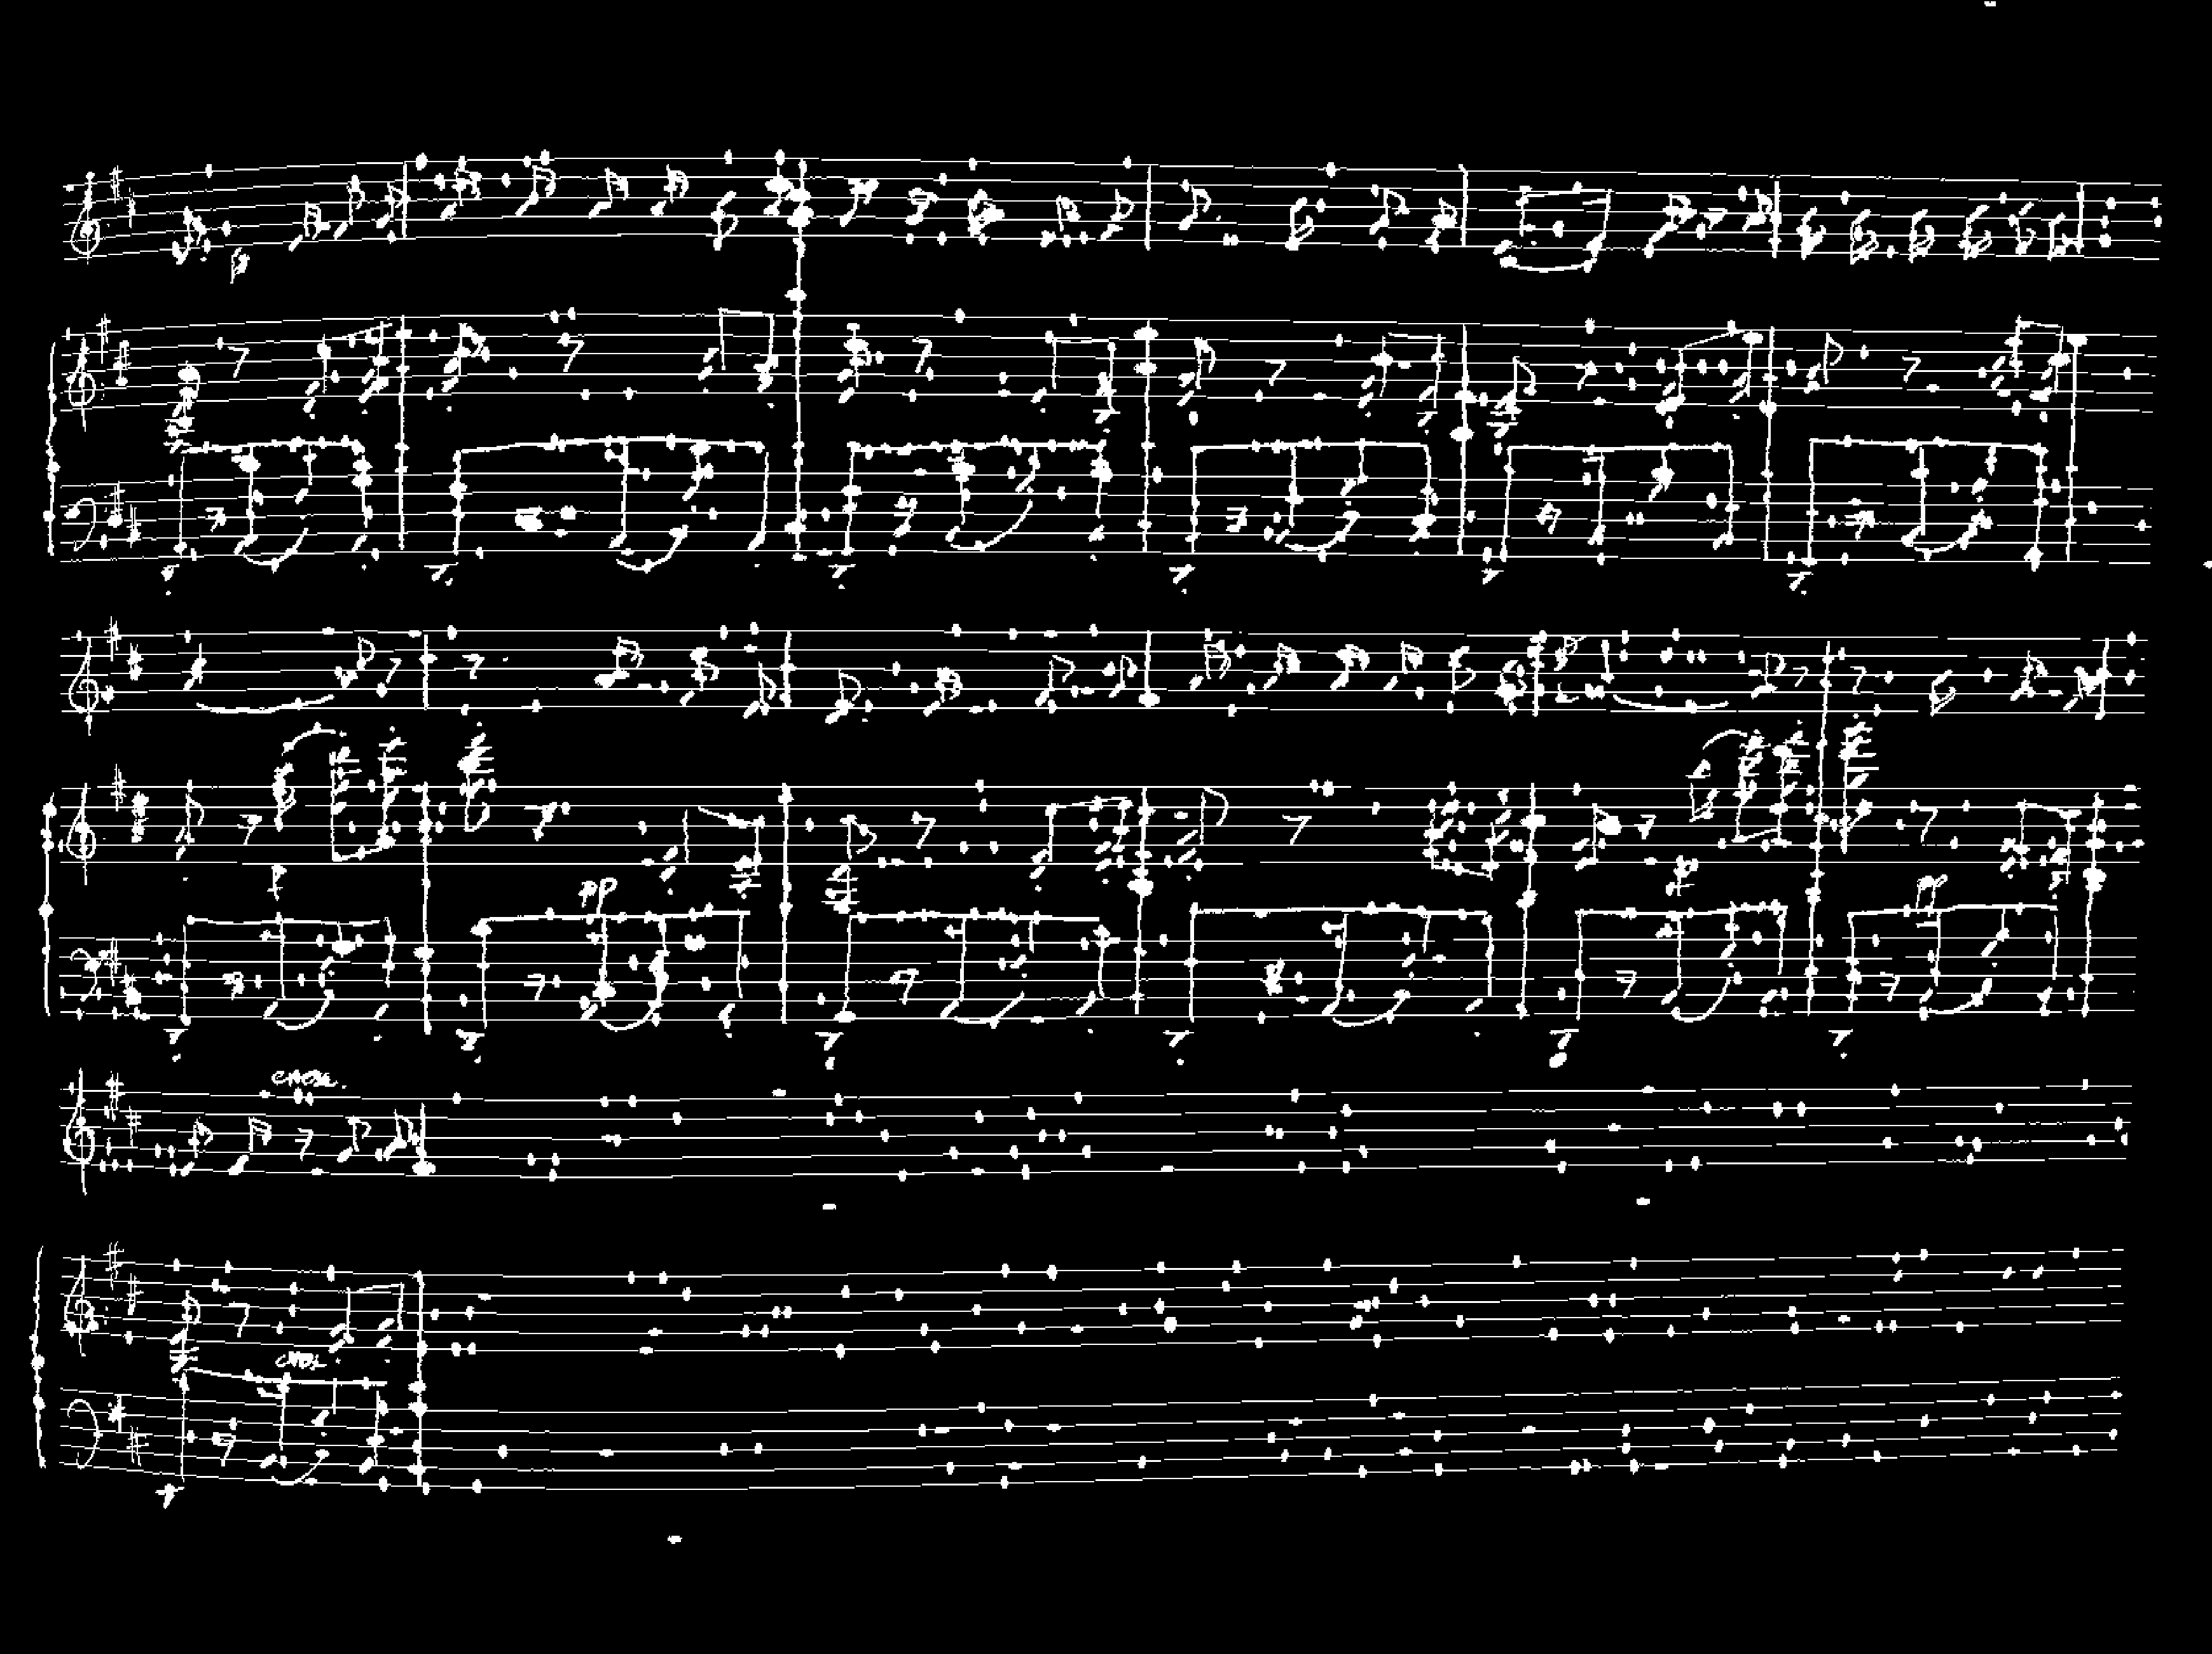 pp
pp
cresc.
cresc.